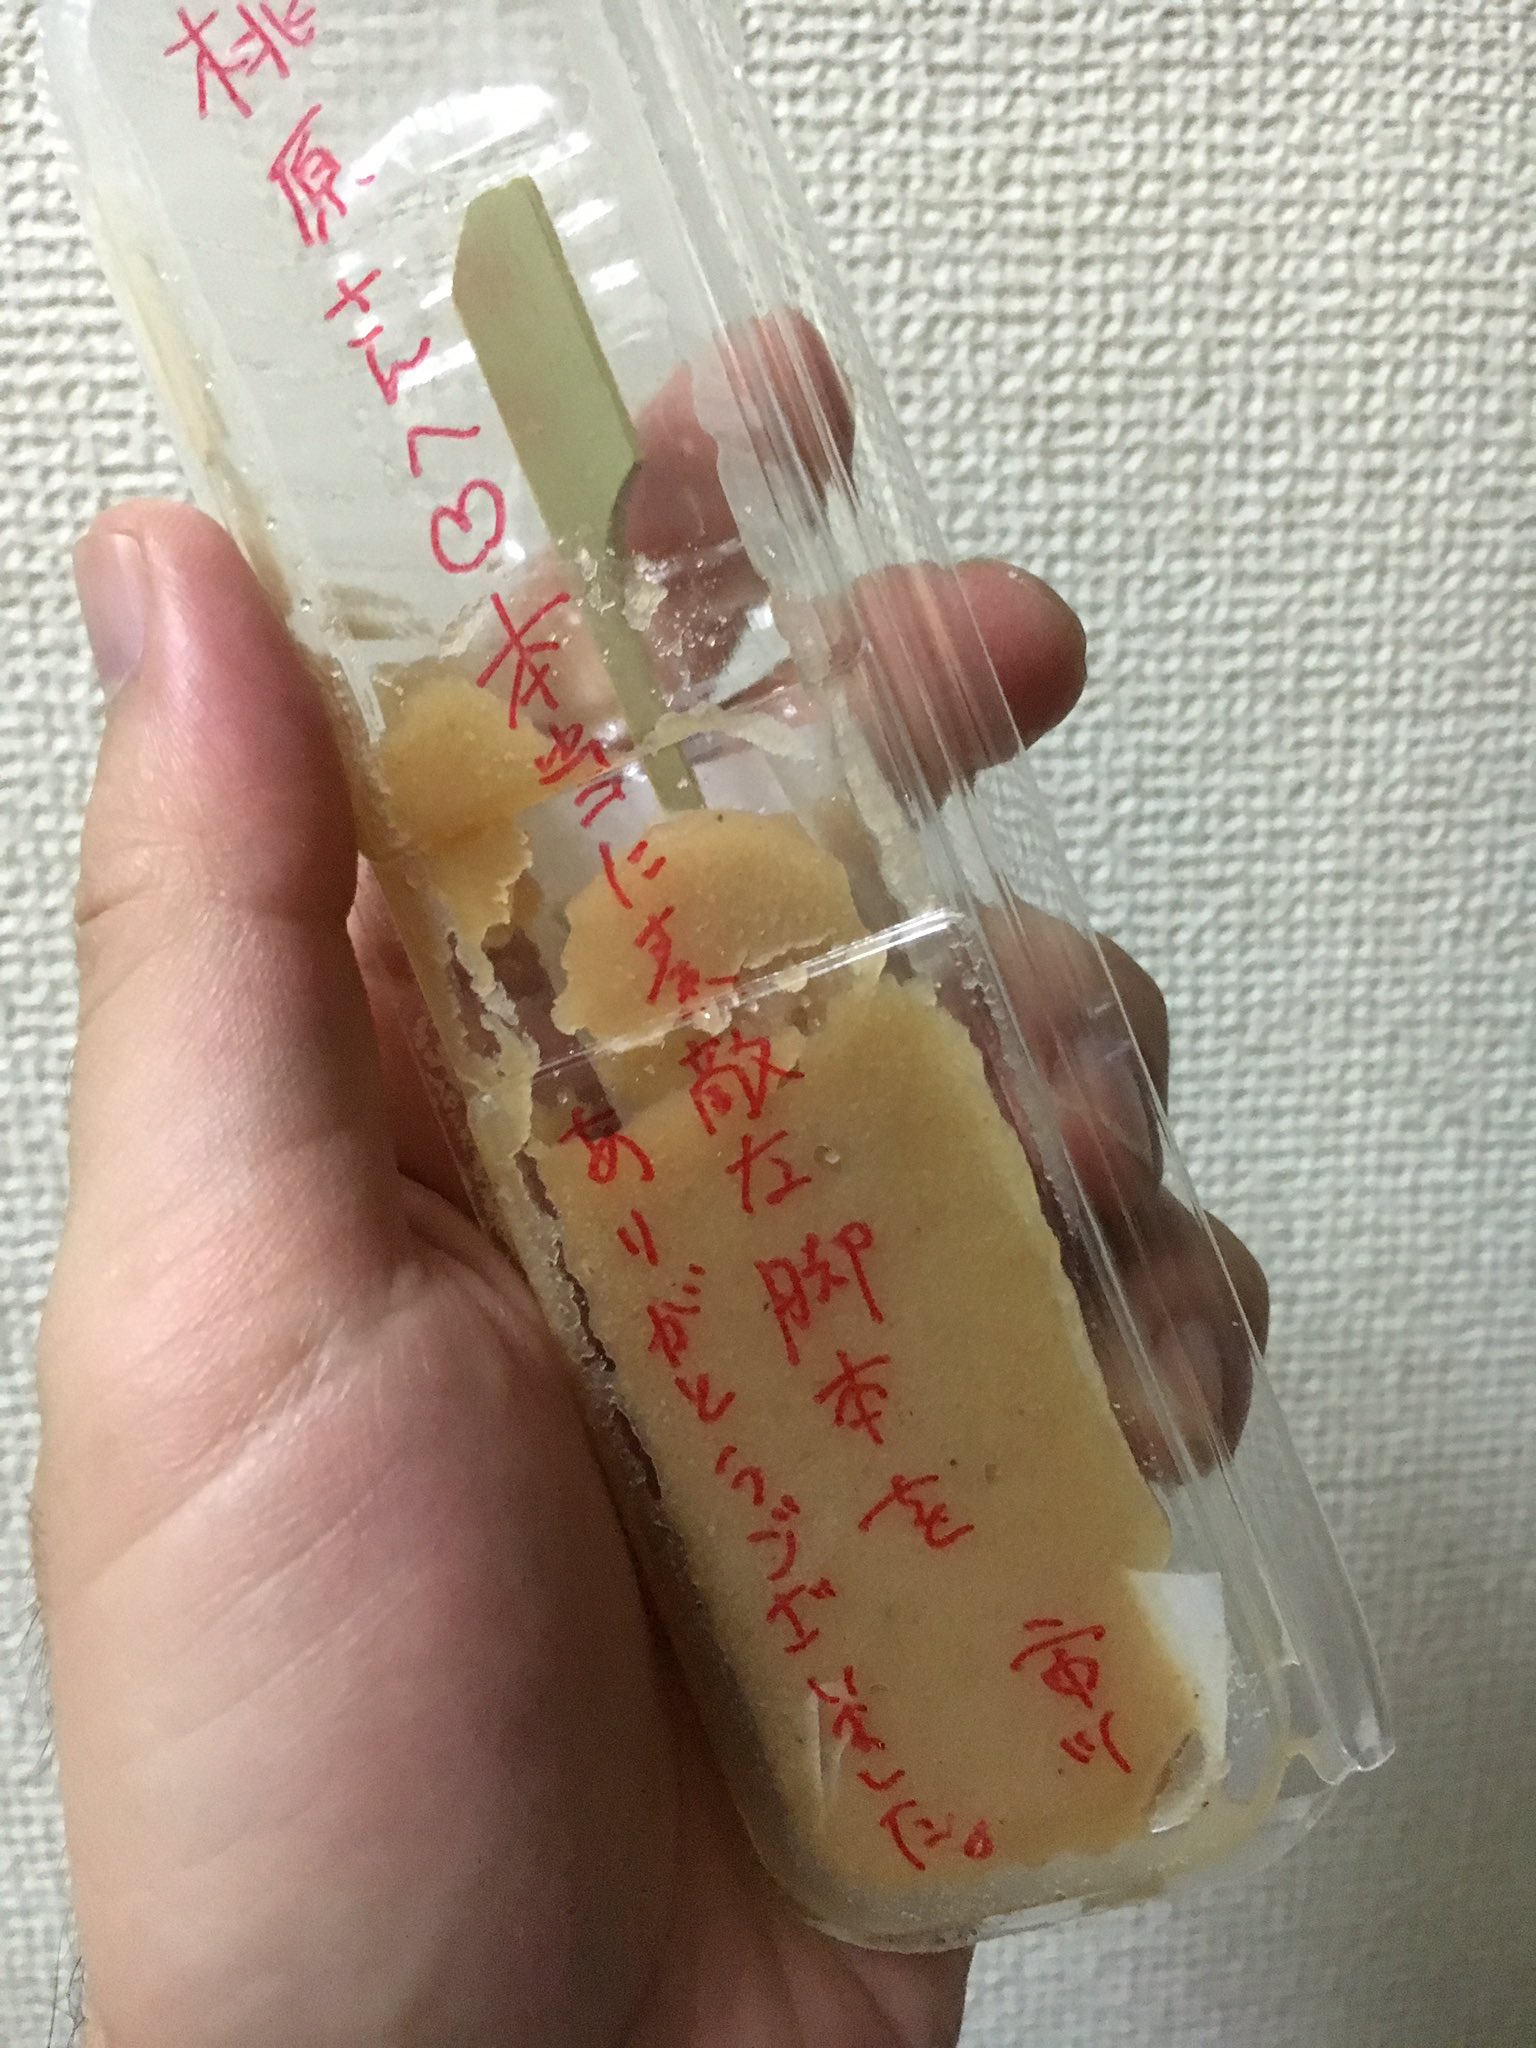 桃原さんへ♡
本当に素敵な脚本を
ありがとうございました。